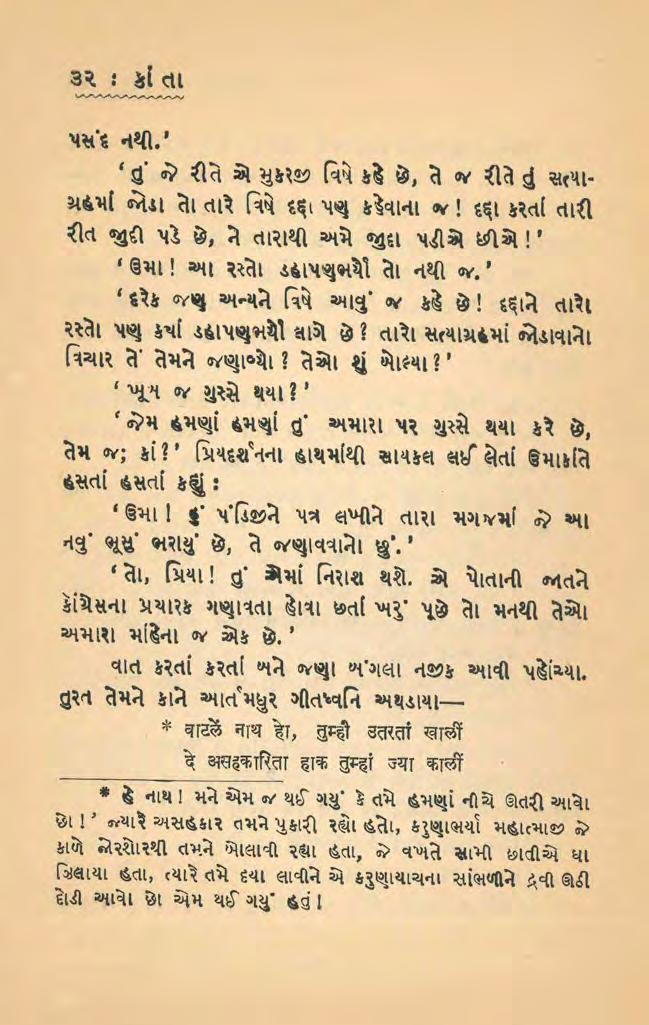 ૩૨ : કાંતા
પસંદ નથી.’
‘તું જે રીતે એ મુકરજી વિષે કહે છે, તે જ રીતે તું સત્યા-
ગ્રહમાં જોડા તો તારે વિષે દદ્દા પણ કહેવાના જ! દદ્દા કરતાં તારી
રીત જુદી પડે છે, ને તારાથી અમે જુદા પડીએ છીએ!’
‘ઉમા! આ રસ્તો ડહાપણભર્યો તો નથી જ.’
‘દરેક જણ અન્યને વિષે આવું જ કહે છે! દદ્દાને તારો
રસ્તો પણ ક્યાં ડહાપણભર્યો લાગે છે? તારો સત્યાગ્રહમાં જોડાવાનો
વિચાર તેં તેમને જણાવ્યો? તેઓ શું બોલ્યા?’
‘ખૂબ જ ગુસ્સે થયા?’
‘જેમ હમણાં હમણાં તું અમારા પર ગુસ્સે થયા કરે છે,
તેમ જ; કાં?’ પ્રિયદર્શનના હાથમાંથી સાયકલ લઈ લેતાં ઉમાકાંતે
હસતાં હસતાં કહ્યું :
‘ઉમા! હું પંડિજીને પત્ર લખીને તારા મગજમાં જે આ
નવું ભૂસું ભરાયું છે, તે જણાવવાનો છું.’
‘તો, પ્રિયા! તું એમાં નિરાશ થશે. એ પોતાની જાતને
કૉંગ્રેસના પ્રચારક ગણાવતા હોવા છતાં ખરું પૂછે તો મનથી તેઓ
અમારા માંહેના જ એક છે.’
વાત કરતાં કરતાં બને જણા બંગલા નજીક આવી પહોંચ્યા.
તુરત તેમને કાને આર્તમધુર ગીતધ્વનિ અથડાયા—
* वाटलें नाथ हो, तुम्ही उतरतां खालीं
दे असहकारिता हाक तुम्हां ज्या कालीं
* હે નાથ! મને એમ જ થઈ ગયું કે તમે હમણાં નીચે ઊતરી આવો
છો!’ જ્યારે અસહકાર તમને પુકારી રહ્યો હતો, કરુણાભર્યા મહાત્માજી જે
કાળે જોરશોરથી તમને બોલાવી રહ્યા હતા, જે વખતે સામી છાતીએ ઘા
ઝિલાયા હતા, ત્યારે તમે દયા લાવીને એ કરુણાયાચના સાંભળીને દ્રવી ઊઠી
દોડી આવો છો એમ થઈ ગયું હતું!